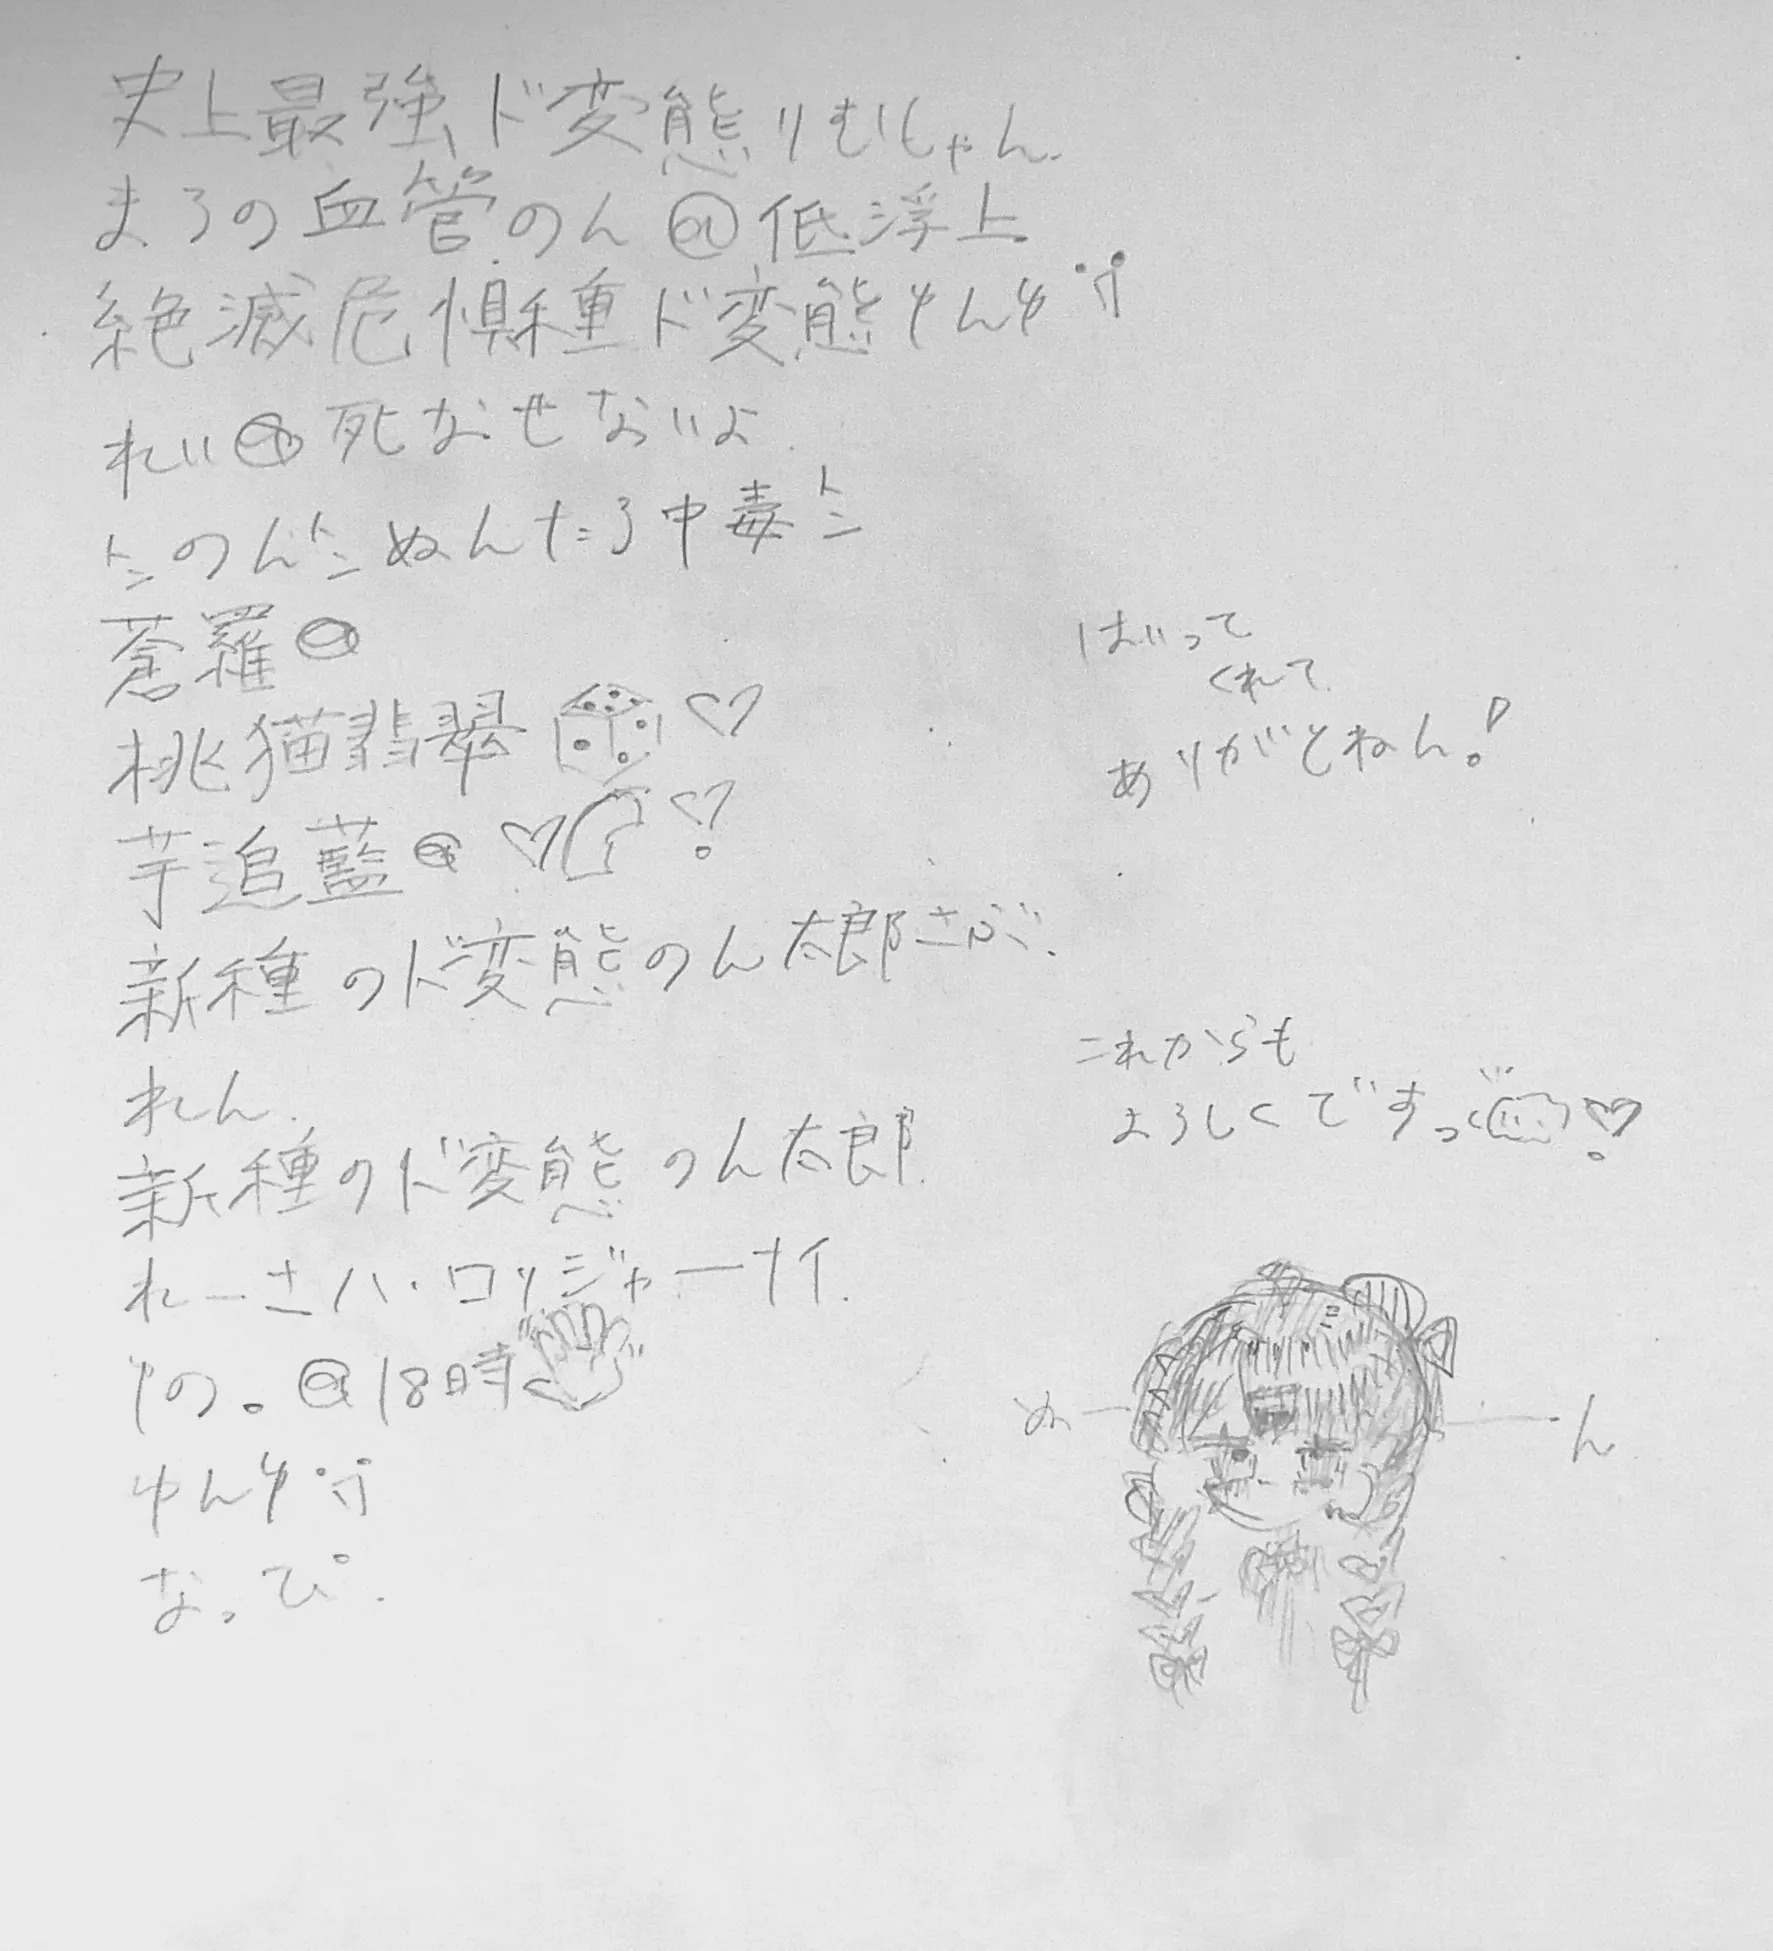 史上最強ド変態りむしゃん.
まろの血管のん@低浮上
絶滅危惧種ド変態ゆんゆ
れい@死なせないよ
のん ぬんたろ中毒
蒼羅@
桃猫翡翠
芋追藍@
新種のド変態のん太郎さぶ.
れん.
新種のド変態のん太郎.
れーさハ・ロッジャーナイ.
りの。@18時
ゆんゆ
なっぴ.
はいって
くれて
ありがとねん!
これからも
よろしくですっ
ぬーん